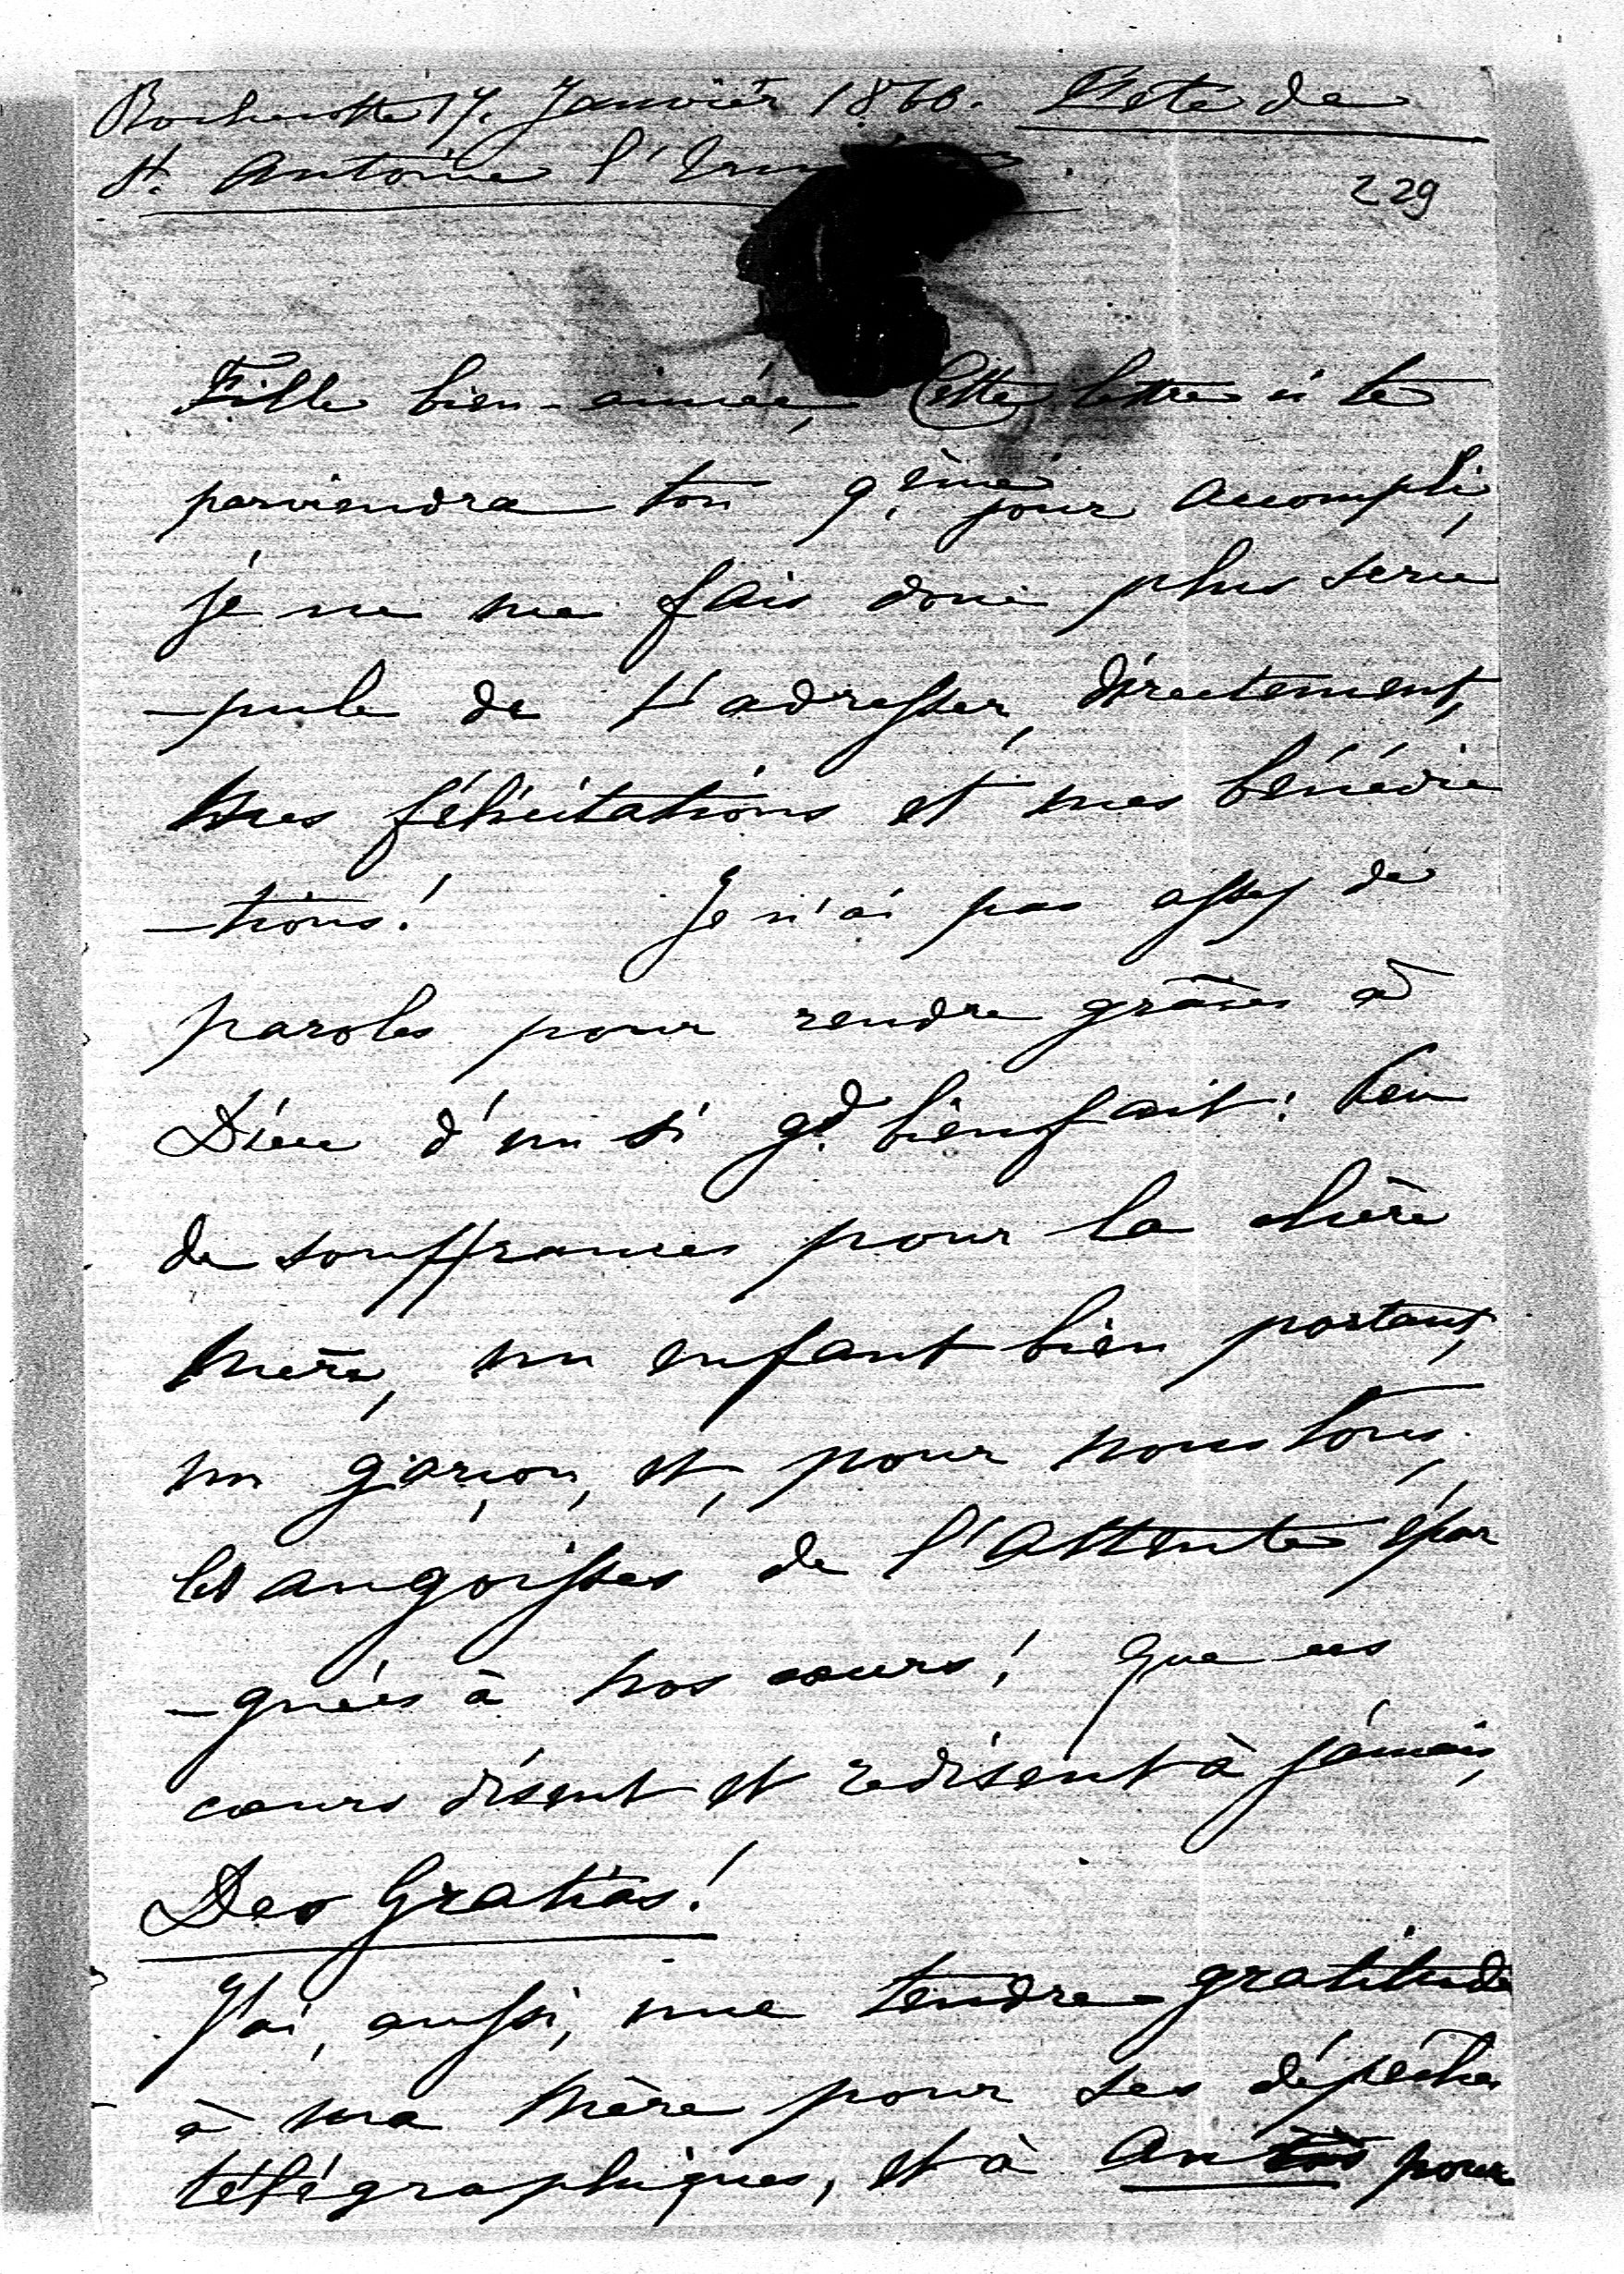 Rochecotte 17. Janvier 1860. Fête de
St. Antoine l'Erm
229
Fille bien-aimée, Cette lettre ci te
parviendra ton 9.ème jour accompli,
je ne me fais donc plus scru
-pule de t'adresser, directement,
mes félicitations et mes bénédic
-tions! Je n'ai pas assez de
paroles pour rendre grâces à
Dieu d'un si gd. bienfait: Peu
de souffrances pour la chère
mère, un enfant bien portant,
un garçon, et, pour nous tous,
les angoisses de l'attente épar
-gnées à nos cœurs! Que ces
cœurs disent et redisent à jamais,
Deo Gratias!
J'ai, aussi, une tendre gratitude
à ma Mère pour ses dépêches
télégraphiques, et à pour